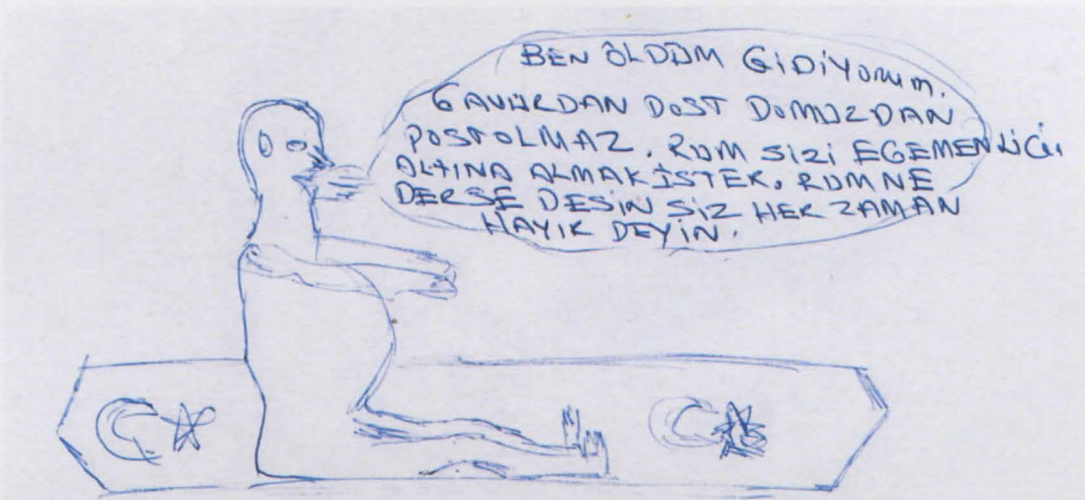 BEN ÖLDÜM GİDİYORUM.
GAVURDAN DOST DOMUZDAN
POSTOLMAZ. RUM SİZİ EGEMENLİĞİ
ALTINA ALMAK İSTER. RUM NE
DERSE DESİN SİZ HER ZAMAN
HAYIR DEYİN.